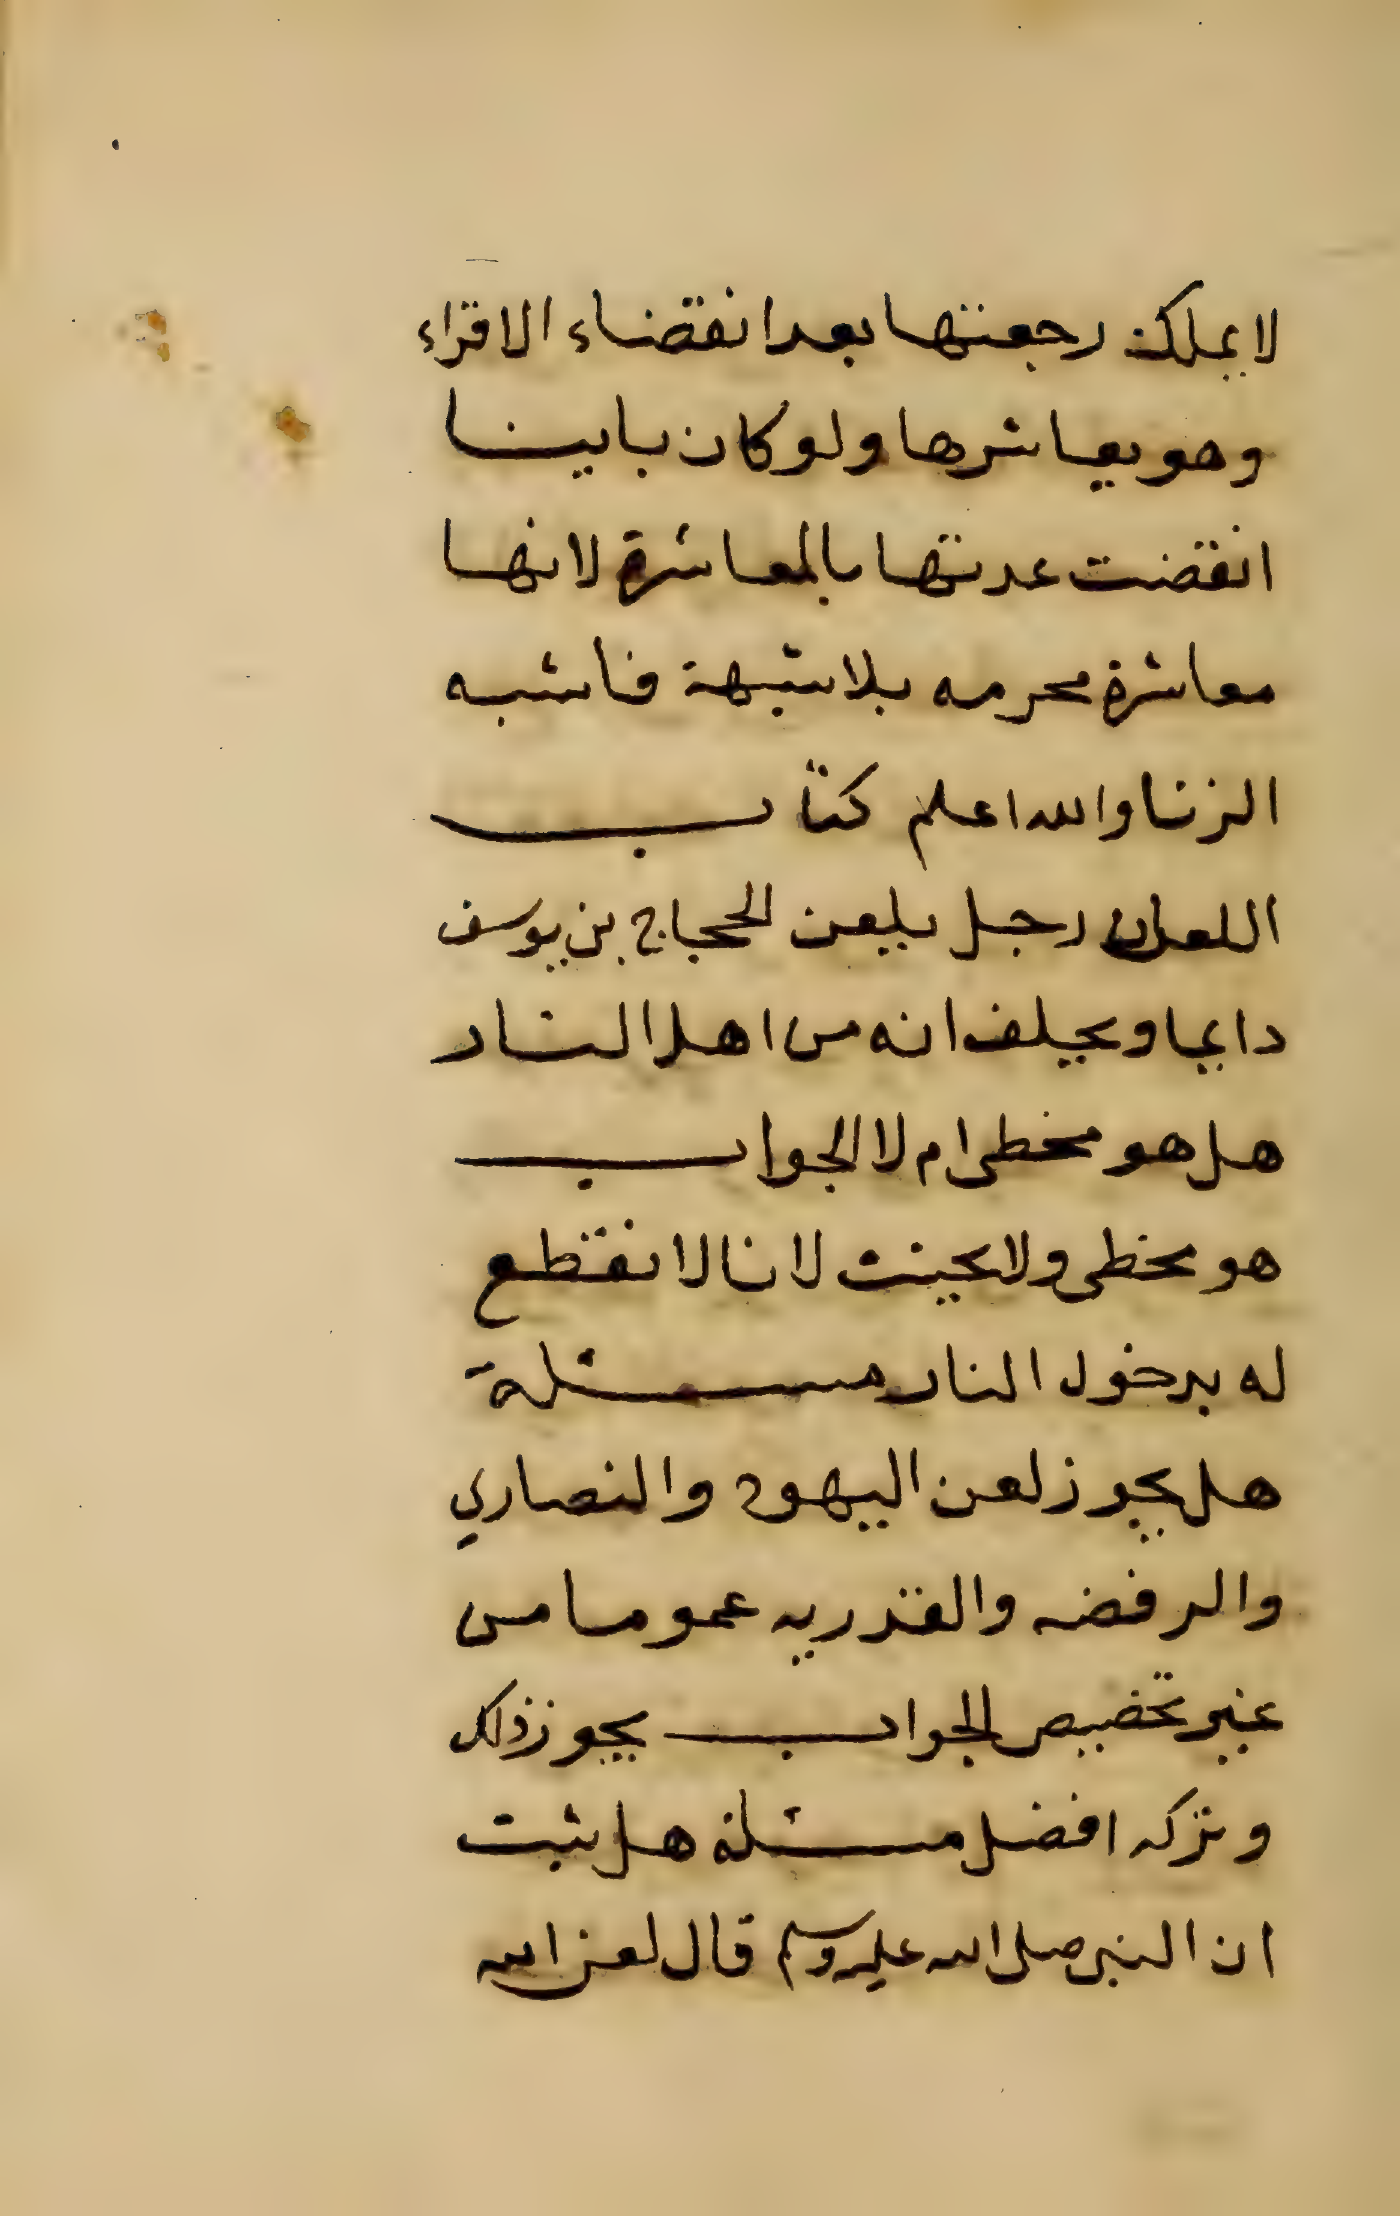 لا يملك رجعتها بعد انقضاء الاقراء
وهو يعاشرها ولو كان باينا
انقضت عدتها بالمعاشرة لانها
معاشرة محرمه بلا شبهة فاشبه
الزنا والله اعلم كتاب
اللعان رجل يلعن الحجاج بن يوسف
دايما ويحلف انه من اهل النار
هل هو مخطى ام لا الجواب
هو مخطى ولا يحنث لانا لا نقطع
له بدخول النار مسئلة
هل يجوز لعن اليهود والنصاري
والرفضه والقدريه عموما من
غير تخصيص الجواب يجوز ذلك
وتركه افضل مسئلة هل ثبت
ان النبي صلى الله عليه وسلم قال لعن الله